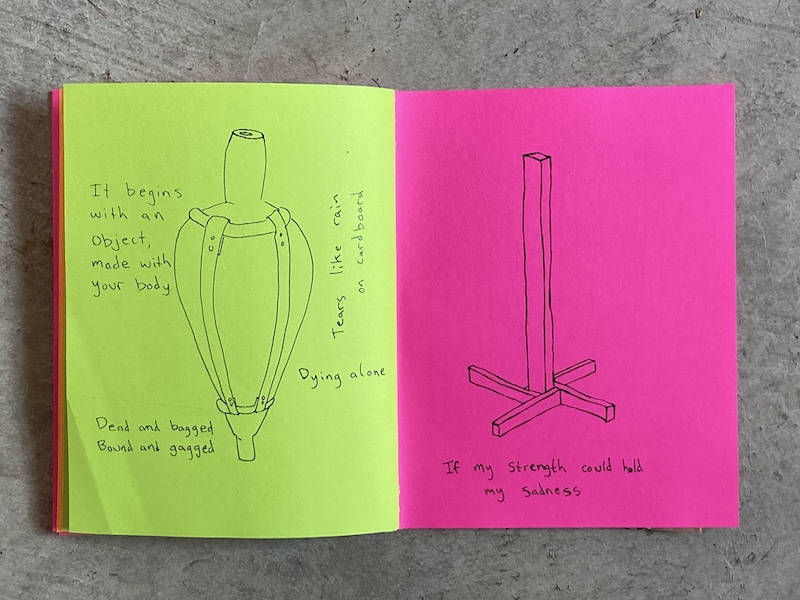 It begins
with an
Object,
made with
your body.
Tears like rain
on cardboard
Dying alone
Dead and bagged
Bound and gagged
If my strength could hold
my sadness